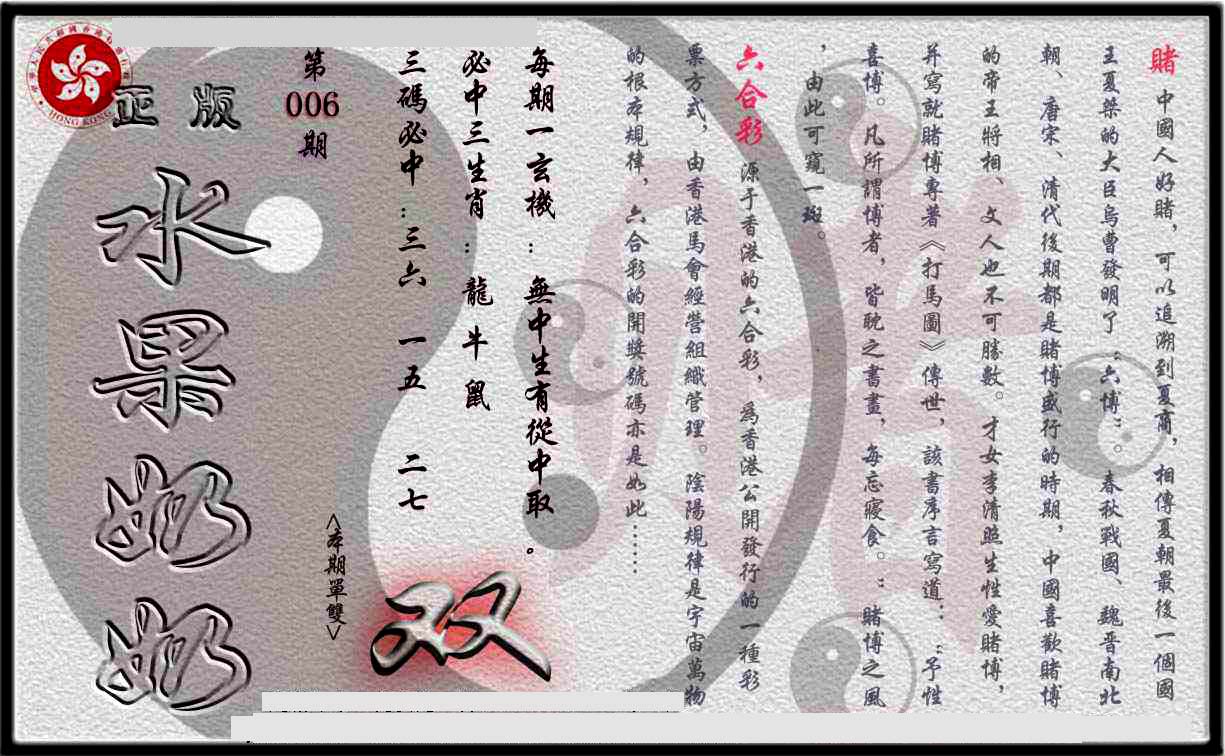 賭 中國人好賭，可以追溯到夏商，相傳夏朝最後一個國
王夏桀的大臣烏曹發明了“六博”。春秋戰國、魏晋南北
朝、唐宋、清代後期都是賭博盛行的時期，中國喜歡賭博
的帝王將相、文人也不可勝數。才女李清照生性愛賭博，
并寫就賭博專著《打馬圖》傳世，該書序言寫道：“予性
喜博。凡所謂博者，皆耽之書晝，每忘寢食。”賭博之風
，由此可窺一斑。
六合彩 源于香港的六合彩，為香港公開發行的一種彩
票方式，由香港馬會經營組織管理。陰陽規律是宇宙萬物
的根本規律，六合彩的開獎號碼亦是如此……
每期一玄機：無中生有從中取。
必中三生肖：龍 牛 鼠
三碼必中：三六 一五 二七
<本期單雙>
双
第
006
期
正版
水果奶奶
HONG KONG